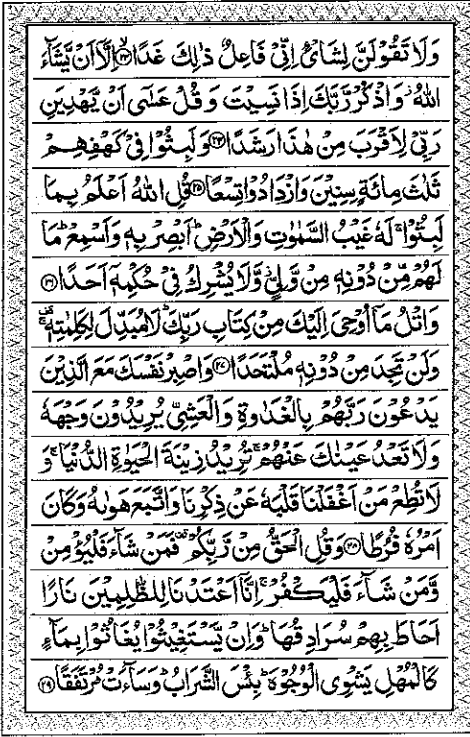 وَلَا تَقُوۡلَنَّ لِشَاىۡءٍ اِنِّىۡ فَاعِلٌ ذٰلِكَ غَدًا ۙ‏﴿۲۳﴾ اِلَّاۤ اَنۡ يَّشَآءَ
اللّٰهُ‌ وَاذۡكُرْ رَّبَّكَ اِذَا نَسِيۡتَ وَقُلۡ عَسٰٓى اَنۡ يَّهۡدِيَنِ
رَبِّىۡ لِاَقۡرَبَ مِنۡ هٰذَا رَشَدًا‏ ﴿۲۴﴾ وَلَبِثُوۡا فِىۡ كَهۡفِهِمۡ
ثَلٰثَ مِائَةٍ سِنِيۡنَ وَازۡدَادُوۡا تِسۡعًا‏ ﴿۲۵﴾ قُلِ اللّٰهُ اَعۡلَمُ بِمَا
لَبِثُوۡا‌ ۚ لَهٗ غَيۡبُ السَّمٰوٰتِ وَالۡاَرۡضِ‌ ؕ اَبۡصِرۡ بِهٖ وَاَسۡمِعۡ‌ ؕ مَا
لَهُمۡ مِّنۡ دُوۡنِهٖ مِنۡ وَّلِىٍّ وَّلَا يُشۡرِكُ فِىۡ حُكۡمِهٖۤ اَحَدًا‏ ﴿۲۶﴾
وَاتۡلُ مَاۤ اُوۡحِىَ اِلَيۡكَ مِنۡ كِتَابِ رَبِّكَ‌ ؕ لَا مُبَدِّلَ لِكَلِمٰتِهٖ ۚ
وَلَنۡ تَجِدَ مِنۡ دُوۡنِهٖ مُلۡتَحَدًا‏ ﴿۲۷﴾ وَاصۡبِرۡ نَفۡسَكَ مَعَ الَّذِيۡنَ
يَدۡعُوۡنَ رَبَّهُمۡ بِالۡغَدٰوةِ وَالۡعَشِىِّ يُرِيۡدُوۡنَ وَجۡهَهٗ‌
وَلَا تَعۡدُ عَيۡنٰكَ عَنۡهُمۡ‌ ۚ تُرِيۡدُ زِيۡنَةَ الۡحَيٰوةِ الدُّنۡيَا‌ ۚ وَ
لَا تُطِعۡ مَنۡ اَغۡفَلۡنَا قَلۡبَهٗ عَنۡ ذِكۡرِنَا وَاتَّبَعَ هَوٰٮهُ وَكَانَ
اَمۡرُهٗ فُرُطًا‏ ﴿۲۸﴾ وَقُلِ الۡحَـقُّ مِنۡ رَّبِّكُمۡ‌ فَمَنۡ شَآءَ فَلۡيُؤۡمِنۡ
وَّمَنۡ شَآءَ فَلۡيَكۡفُرۡ ‌ۚ اِنَّاۤ اَعۡتَدۡنَا لِلظّٰلِمِيۡنَ نَارًا
اَحَاطَ بِهِمۡ سُرَادِقُهَا‌ ؕ وَاِنۡ يَّسۡتَغِيۡثُوۡا يُغَاثُوۡا بِمَآءٍ
كَالۡمُهۡلِ يَشۡوِى الۡوُجُوۡهَ‌ ؕ بِئۡسَ الشَّرَابُ ؕ وَسَآءَتۡ مُرۡتَفَقًا‏ ﴿۲۹﴾